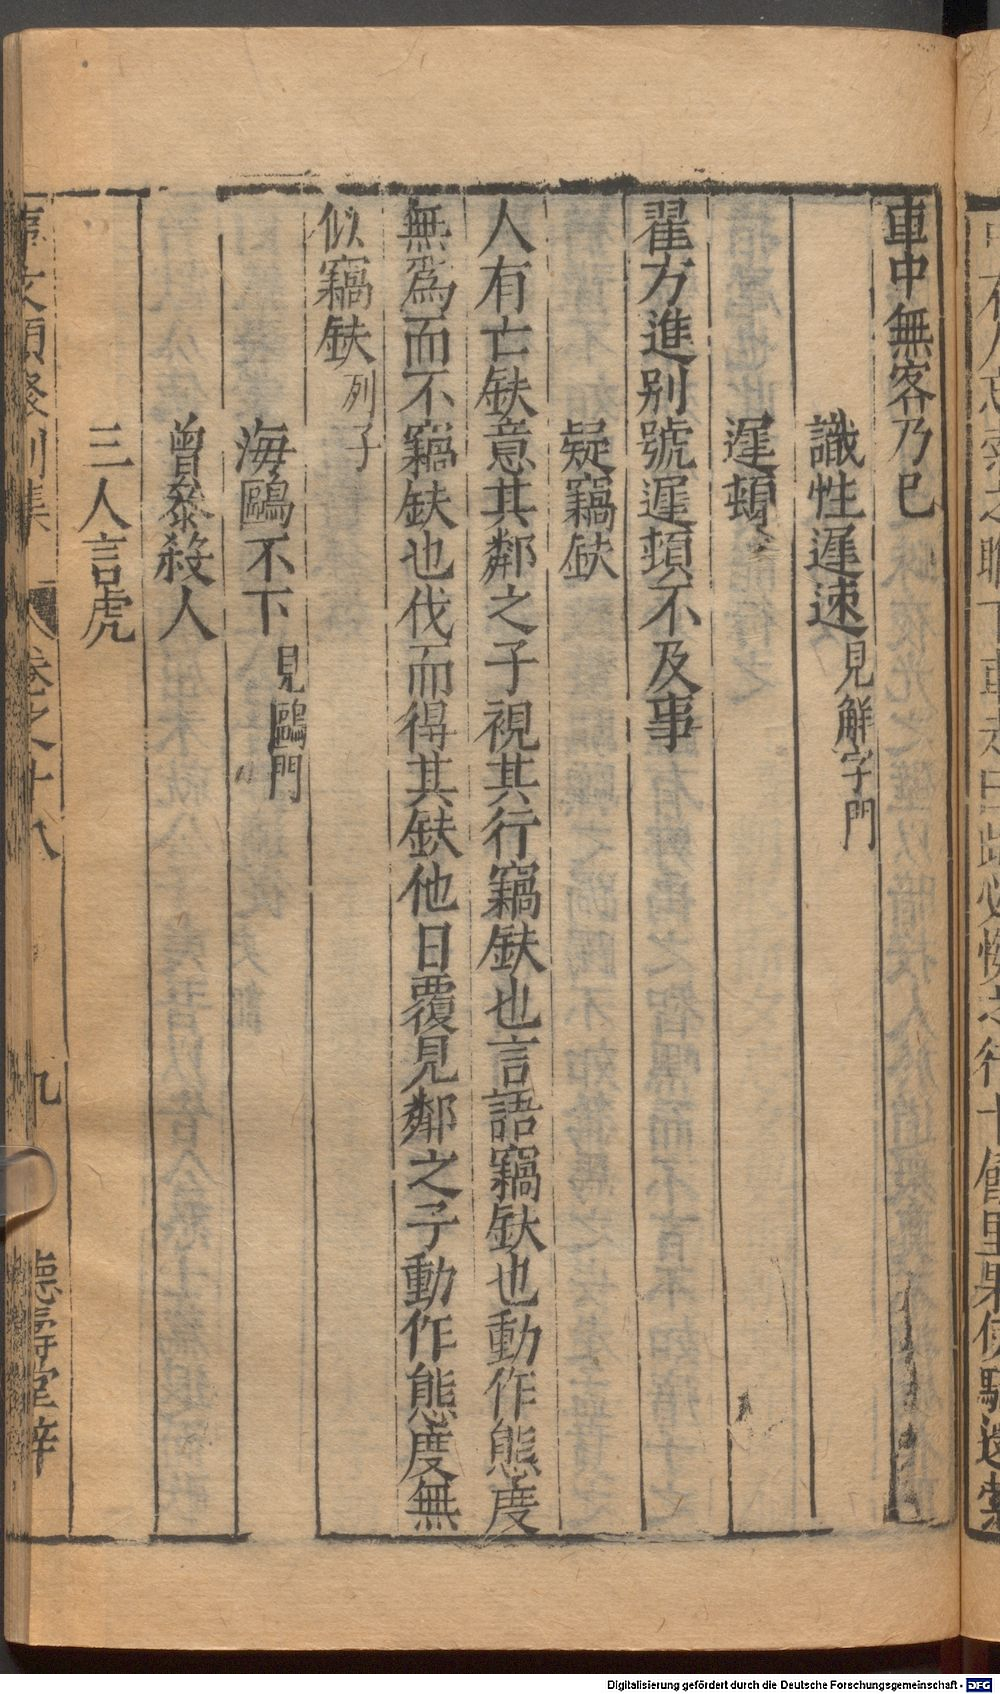 車中無客乃已
識性遲速見解字門
遲頓
翟方進別號遲頓不及事
疑竊鈇
人有亡鈇意其鄰之子視其行竊鈇也言語竊鈇也動作態度
無為而不竊鈇也伐而得其鈇他日覆見鄰之子動作態度無
似竊鈇列子
海鷗不下見鷗門
曾參殺人
三人言虎
事文類聚別集
卷之十八
九
德壽堂梓
Digitalisierung gefördert durch die Deutsche Forschungsgemeinschaft - DFG